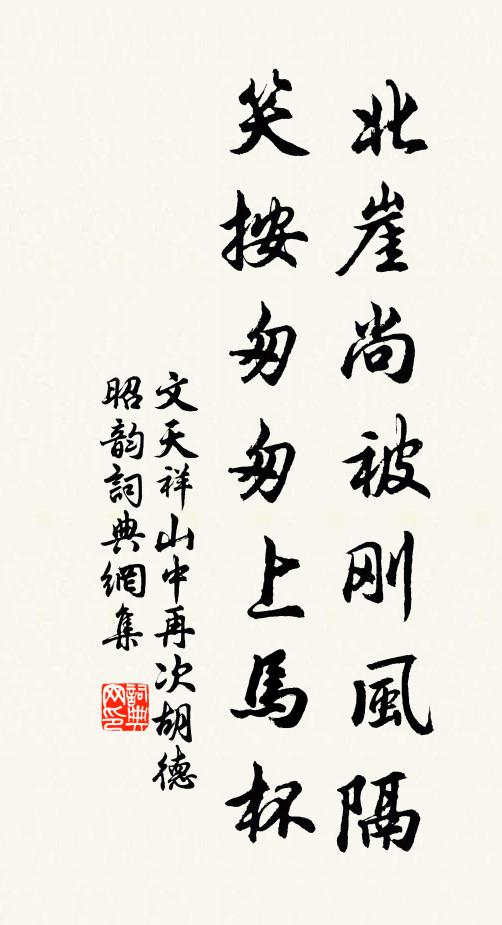 北崖尚被刚風隔
笑按匆匆上馬杯
文天祥山中再次胡德
昭韵詞典網集
詞典網印